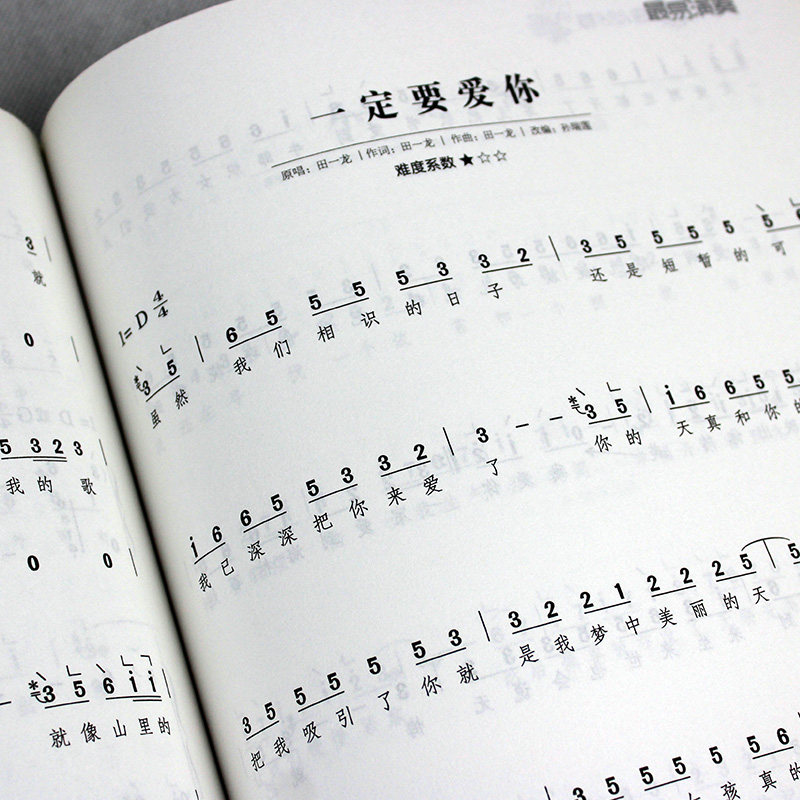 最易演奏
一定要爱你
原唱：田一龙 | 作词：田一龙 | 作曲：田一龙 | 改编：孙瑞莲
难度系数 ★☆☆
1=D 4/4
3 5 | 6 5 5 5 5 3 3 2 | 3 5 5 5 5 5 6
虽然 我们相识的日子 还是短暂的可
i 6 6 5 5 3 3 2 | 3 - - 3 5 | i 6 6 5 5
我已深深把你来爱了 你的天真和你的
3 5 5 5 5 5 5 3 | 3 2 2 1 2 2 2 5 | 5
把我吸引了你就是我梦中美丽的天
5 3 5 5 5 5 5 6
孩真的
3
就
0
5 3 2 3
我的歌
0 0
3 5 6 i i
就像山里的